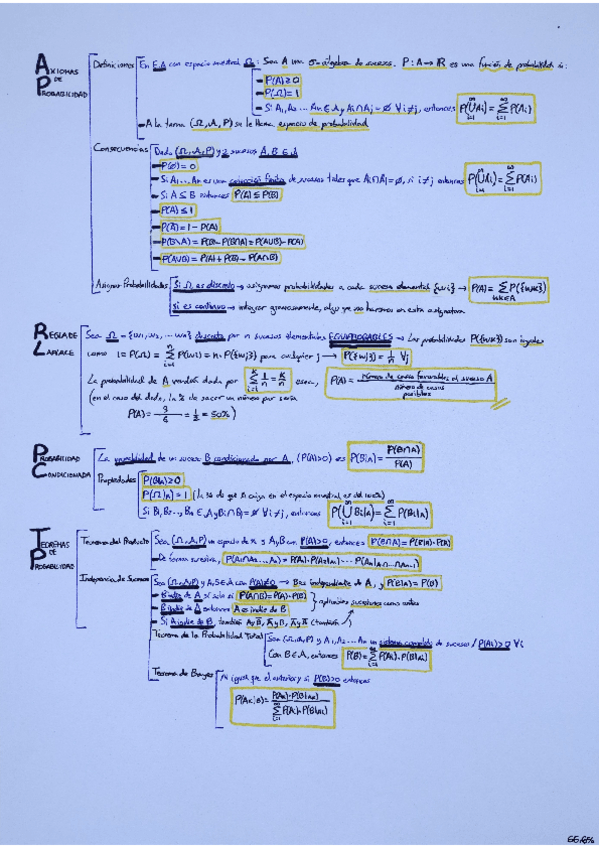 AXIOMAS DE PROBABILIDAD
Definiciones
En E.A con espacio muestral Ω: Sea A una σ-álgebra de sucesos. P: A → ℝ es una función de probabilidad si:
P(A) ≥ 0
P(Ω) = 1
Si A₁, A₂ ... An ∈ A y Ai ∩ Aj = ∅ ∀i≠j, entonces P(⋃Ai) = ∑P(Ai)
A la terna (Ω, A, P) se le llama espacio de probabilidad
Consecuencias
Dado (Ω, A, P) y 2 sucesos A, B ∈ A
P(∅) = 0
Si A₁ ... An es una colección finita de sucesos tales que Ai ∩ Aj = ∅, si i≠j entonces P(⋃Ai) = ∑P(Ai)
Si A ⊆ B entonces P(A) ≤ P(B)
P(A) ≤ 1
P(Ā) = 1 - P(A)
P(B\A) = P(B) - P(B∩A) = P(A∪B) - P(A)
P(A∪B) = P(A) + P(B) - P(A∩B)
Asignar Probabilidades
Si Ω es discreto → asignamos probabilidades a cada suceso elemental {wi} → P(A) = ∑ P({wk}) wk∈A
Si es continuo → integrar
algo que no haremos en esta asignatura
REGLA DE LAPLACE
Sea Ω = {w₁, w₂, ... wn} discreto por n sucesos elementales EQUIPROBABLES → Las probabilidades P({wk}) son iguales
como 1 = P(Ω) = ∑ P(wi) = n · P({wj}) para cualquier j → P({wj}) = 1/n ∀j
La probabilidad de A vendrá dada por ∑ 1/n = k/n o sea, P(A) = número de casos favorables al suceso A / número de casos posibles
(en el caso del dado, la % de sacar un número par sería
P(A) = 3/6 = 1/2 = 50%)
PROBABILIDAD CONDICIONADA
La probabilidad de un suceso B condicionado por A, (P(A)>0) es P(B|A) = P(B∩A) / P(A)
Propiedades
P(B|A) ≥ 0
P(Ω|A) = 1 (la % de que A caiga en el espacio muestral es del 100%)
Si B₁, B₂ ..., Bn ∈ A y Bi ∩ Bj = ∅ ∀i≠j, entonces P(⋃Bi|A) = ∑P(Bi|A)
TEOREMAS DE PROBABILIDAD
Teorema del Producto
Sea (Ω, A, P) un espacio de % y A y B con P(A)>0, entonces P(B∩A) = P(B|A) · P(A)
De forma sucesiva, P(A₁∩A₂...An) = P(A₁) · P(A₂|A₁) ... P(An|A₁∩...An-1)
Independencia de Sucesos
Sea (Ω, A, P) y A, B ∈ A con P(A)≠0 → B es independiente de A, y P(B|A) = P(B)
B indie de A sí solo si P(A∩B) = P(A) · P(B)
B indie de A entonces A es indie de B
aplicable sucesivamente como antes
Si A indie de B también
Teorema de la Probabilidad Total
Sea (Ω, A, P) y A₁, A₂ ... An un sistema completo de sucesos / P(Ai) > 0 ∀i
Con B ∈ A, entonces P(B) = ∑P(Ai) · P(B|Ai)
Teorema de Bayes
Al igual que el anterior y si P(B)>0 entonces
P(Ak|B) = P(Ak) · P(B|Ak) / ∑P(Ai) · P(B|Ai)